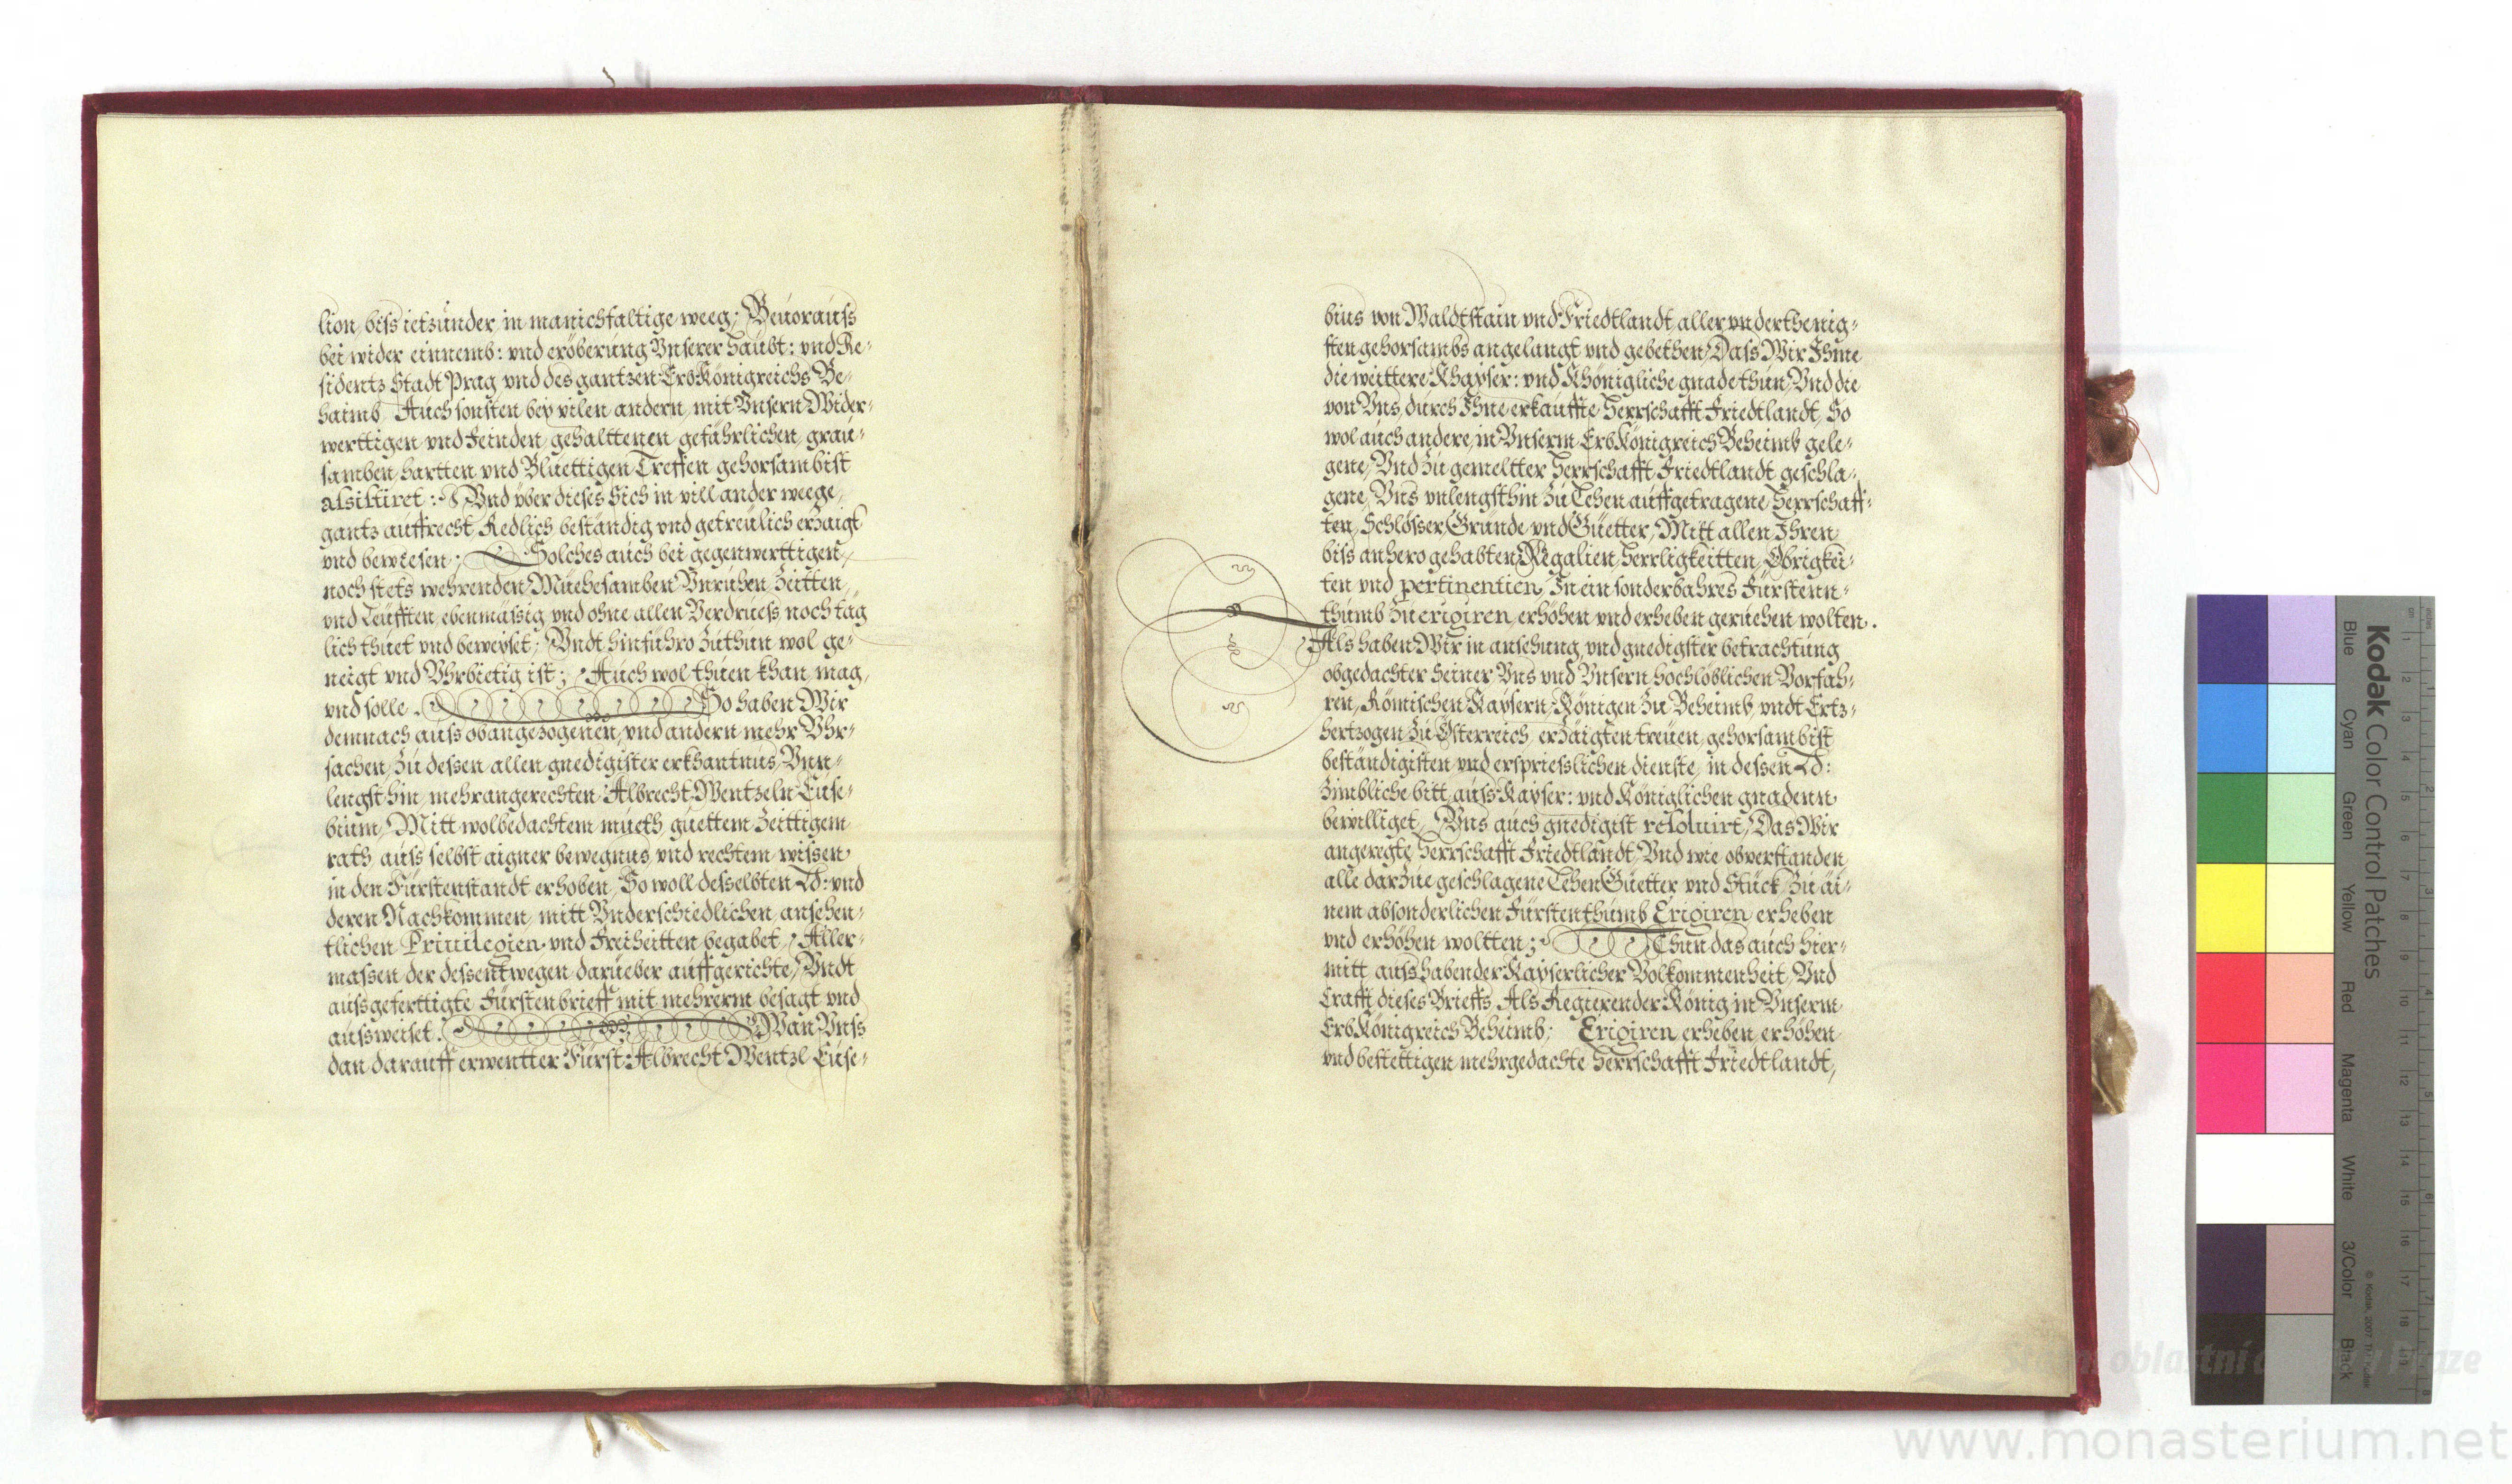 lion, biß ietzünder, in manichfältige weeg; Beuorauß
bei wider einnemb: vnd eröberung Vnserer Haübt: vnd Re-
sidentz Stadt Prag vnd des gantzen ErbKönigreichs Be-
haimb Auch sonsten bey vilen andern, mit Vnsern Wider-
werttigen vnd Feinden, gehalttenen gefährlichen, grau-
samben, hartten vnd Blüettigen Treffen gehorsambist
assistiret: Vnd vber dieses Sich in vill ander weege,
gantz auffrecht, Redlich beständig vnd getreülich erzaigt
vnd bewiesen; Solches auch bei gegenwerttigen,
noch stets wehrenden Müehesamben Vnruhen, Zeitten,
vnd Leüfften, ebenmässig vnd ohne allen Verdruess noch täg
lich thuet vnd beweyset; Vndt hinführo zuthun wol ge-
neigt vnd Vhrbietig ist; Auch wol thuen khan, mag,
vnd solle. So haben Wir
demnach auss obangezogenen, vnd andern mehr Vhr-
sachen, Zu dessen allen gnedigister erkhantnus, Vnn-
lengst hin, mehrangerechten Albrecht Wentzeln Euse-
bium, Mitt wolbedachtem mueth, guettem Zeittigem
rath, auss selbst aigner bewegnus, vnd rechtem wissen
in den Fürstenstandt erhoben, So woll desselbten Ld: vnd
deren Nachkommen, mitt Vnderschiedlichen, ansehen-
tlichen Priuilegien vnd Freiheitten begabet, Aller-
massen der dessentwegen darüeber auffgerichte, Vndt
aussgeferttigte Fürstenbrieff mit mehrerm besagt vnd
aussweiset. Wan Vnss
dan darauff erwentter Fürst: Albrecht Wentzl Euse-
bius von Waldtstain vnd Friedtlandt, aller vnderthenig-
sten gehorsambs angelangt vnd gebethen, Dass Wir Ihme
die weittere Khayser: vnd Khönigliche gnade thun, Vnd die
von Vns, durch Ihne erkauffte Herrschafft Friedtlandt, So
wol auch andere, in Vnserm ErbKönigreich Beheimb gele-
gene, Vnd Zu gemeltter Herrschafft Friedtlandt geschla-
gene, Vns vnlengsthin Zu Lehen auffgetragene, Herrschaff-
ten, Schlösser, Gründe vnd Güetter, Mitt allen Ihren
biss anhero gehabten Regalien, Herrligkeitten, Obrigkei-
ten vnd pertinentien, In ein sonderbahres Fürstenn-
thumb Zu erigiren, erhöhen vnd erheben geruehen wolten.
Als haben Wir in ansehung, vnd gnedigster betrachtung
obgedachter Seiner Vns vnd Vnsern hochlöblichen Vorfah-
ren, Römischen Kaysern, Königen Zu Beheimb, vndt Ertz-
hertzogen Zu Österreich, erzäigten treuen, gehorsambist
beständigisten vnd erspriesslichen dienste, in dessen Ld:
Zimbliche bitt, auss Kayser: vnd Königlichen gnadenn
bewilliget, Vns auch gnedigist resoluirt, Das Wir
angeregte Herrschafft Friedtlandt, Vnd wie obverstanden
alle darzue geschlagene LehenGüetter vnd Stück, Zu äi-
nem absonderlichen Fürstenthumb Erigiren erheben
vnd erhöhen woltten; Thun das auch hier-
mitt auss habender Kayserlicher Volkommenheit, Vnd
Crafft dieses Brieffs, Als Regierender König in Vnserm
ErbKönigreich Beheimb; Erigiren, erheben, erhöhen
vnd bestettigen mehrgedachte Herrschafft Friedtlandt,
Kodak Color Control Patches
Blue Cyan Green Yellow Red Magenta White 3/Color Black
www.monasterium.net